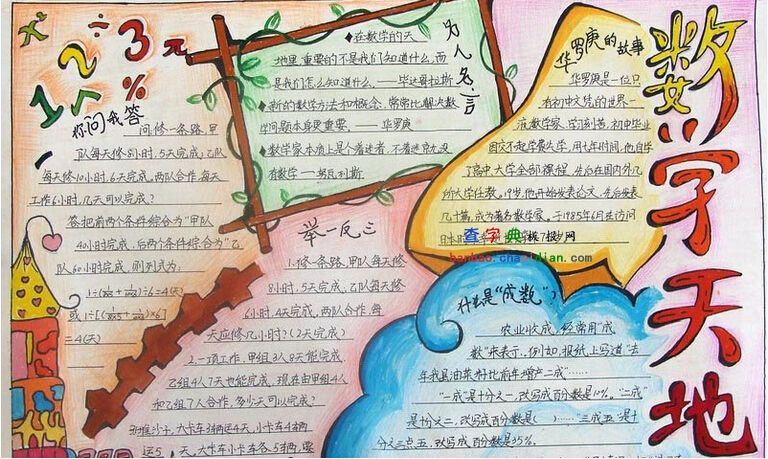 数学天地
x² 1 ÷ 2 3 π
%
你问我答
问：修一条路，甲
队每天修8小时，5天完成；乙队
每天修10小时，6天完成。两队合作，每天
工作6小时，几天可以完成？
答：把前两个条件综合为“甲队
40小时完成，后两个条件综合为“乙
队60小时完成，则列式为：
= 4(天)
名人名言
◆在数学的天
地里，重要的不是我们知道什么，而
是我们怎么知道什么。——毕达哥拉斯
◆新的数学方法和概念，常常比解决数
学问题本身更重要。——华罗庚
◆数学家本质上是个着迷者，不着迷就没
有数学——努瓦利斯
华罗庚的故事
华罗庚是一位只
有初中文凭的世界一
流数学家，学习刻苦，初中毕业
因交不起学费失学，用七年时间，他自学
了高中、大学全部课程，先后在国内外几
所大学任教，19岁，他开始发表论文，先后发表
几十篇，成为著名数学家，于1985年6月在访问
日本时
查字典板报网
banbao.chazidian.com
举一反三
1.修一条路，甲队每天修
8小时，5天完成；乙队每天修
6小时，4天完成，两队合作，每
天应修几小时？(2天完成)
2.一项工作，甲组3人8天能完成，
乙组4人7天也能完成，现在由甲组4人
和乙组7人合作，多少天可以完成？
大卡车3辆运4天，小卡车4辆
运5天，大卡车小卡车各5辆，需
什么是“成数”？
农业收成，经常用“成
数”来表示，例如，报纸上写道：“去
年我县油菜籽比前年增产二成”……
“一成”是十分之一，改写成百分数是10%。“二成”
是十分之二，改写成百分数是( )……“三成五”是十
分之三点五，改写成百分数是35%。